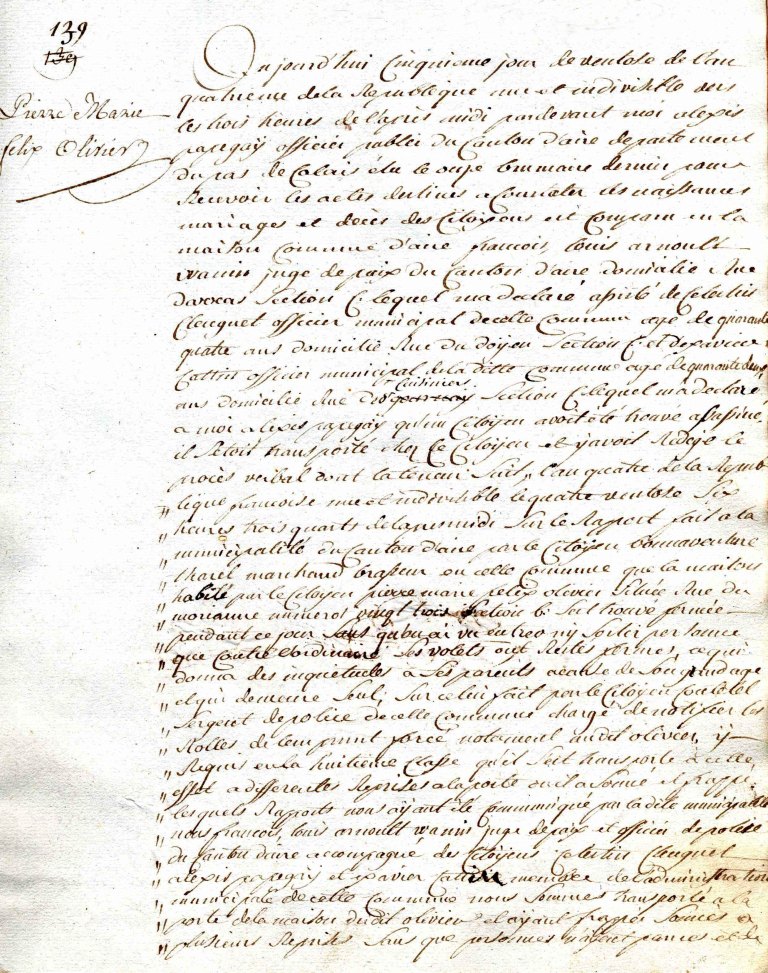 139
139
Pierre Marie
felix Olivier
Aujourd'hui Cinquieme jour de ventose de l'an
quatrieme de la Republique une et indivisible vers
les trois heures de l'après midi pardevant moi alexis
papegay officier public du Canton d'aire departement
du pas de Calais élu le onze brumaire dernier pour
Recevoir les actes destinés a Constater les naissances
mariages et décès des Citoyens est Comparu en la
maison Commune d'aire françois, louis arnoult
wanin juge de paix du Canton d'aire domicilié Rue
Section C. lequel ma declaré assisté de Celestin
Cleuguet officier municipal de cette Commune agé de quarante
quatre ans domicilié Rue du doyen Section C. et de xavier
Cattin officier municipal de la dite Commune agé de quarante deux
Cuisiniers
ans domicilié Rue des Section C. lequel ma declaré
a moi alexis papegay qu'un Citoyen avoit été trouvé assassiné,
il s'etoit transporté chez ce Citoyen et y avoit Redigé le
procès verbal dont la teneur Suit, l'an quatre de la Repub-
" lique françoise une et indivisible le quatre ventose Six
" heures trois quarts de l'apresmidi Sur le Raport fait a la
" municipalité du Canton d'aire par le Citoyen bonnaventure
" tharel marchand brasseur en cette Commune que la maison
" habité par le Citoyen pierre marie felix olivier Située Rue du
" morianne numeros vingt trois Section b. Soit trouvé fermée
" pendant ce jour Sans qu'on ai vu entrer ny Sortir personne
" que Contre l'ordinaire Ses volets ont Restés fermés, ce qui
" donna des inquietudes a Ses parents acause de Son grand age
" et qui demeure Seul, Sur celui fait par le Citoyen
" Sergent de police de cette Commune chargé de notifier les
" Rolles de l'emprunt forcé notament audit olivier, y
" Requis en la huitieme Classe qu'il s'est transporté a cette
" effet a differentes Reprises a la porte ou il a Sonné et frappé
" lesquels Rapports nous ayant été Communiqué par la dite municipalité
" nous françois, louis arnoult wanin juge de paix et officier de police
" du Canton d'aire accompagné des Citoyens Celestin Cleuguet
" alexis papegay et xavier Cattin membre de l'administration
" municipale de cette Commune nous Sommes transporté a la
" porte de la maison dudit olivier et ayant frappé Sonnés a
" plusieurs Reprises Sans que personnes et de